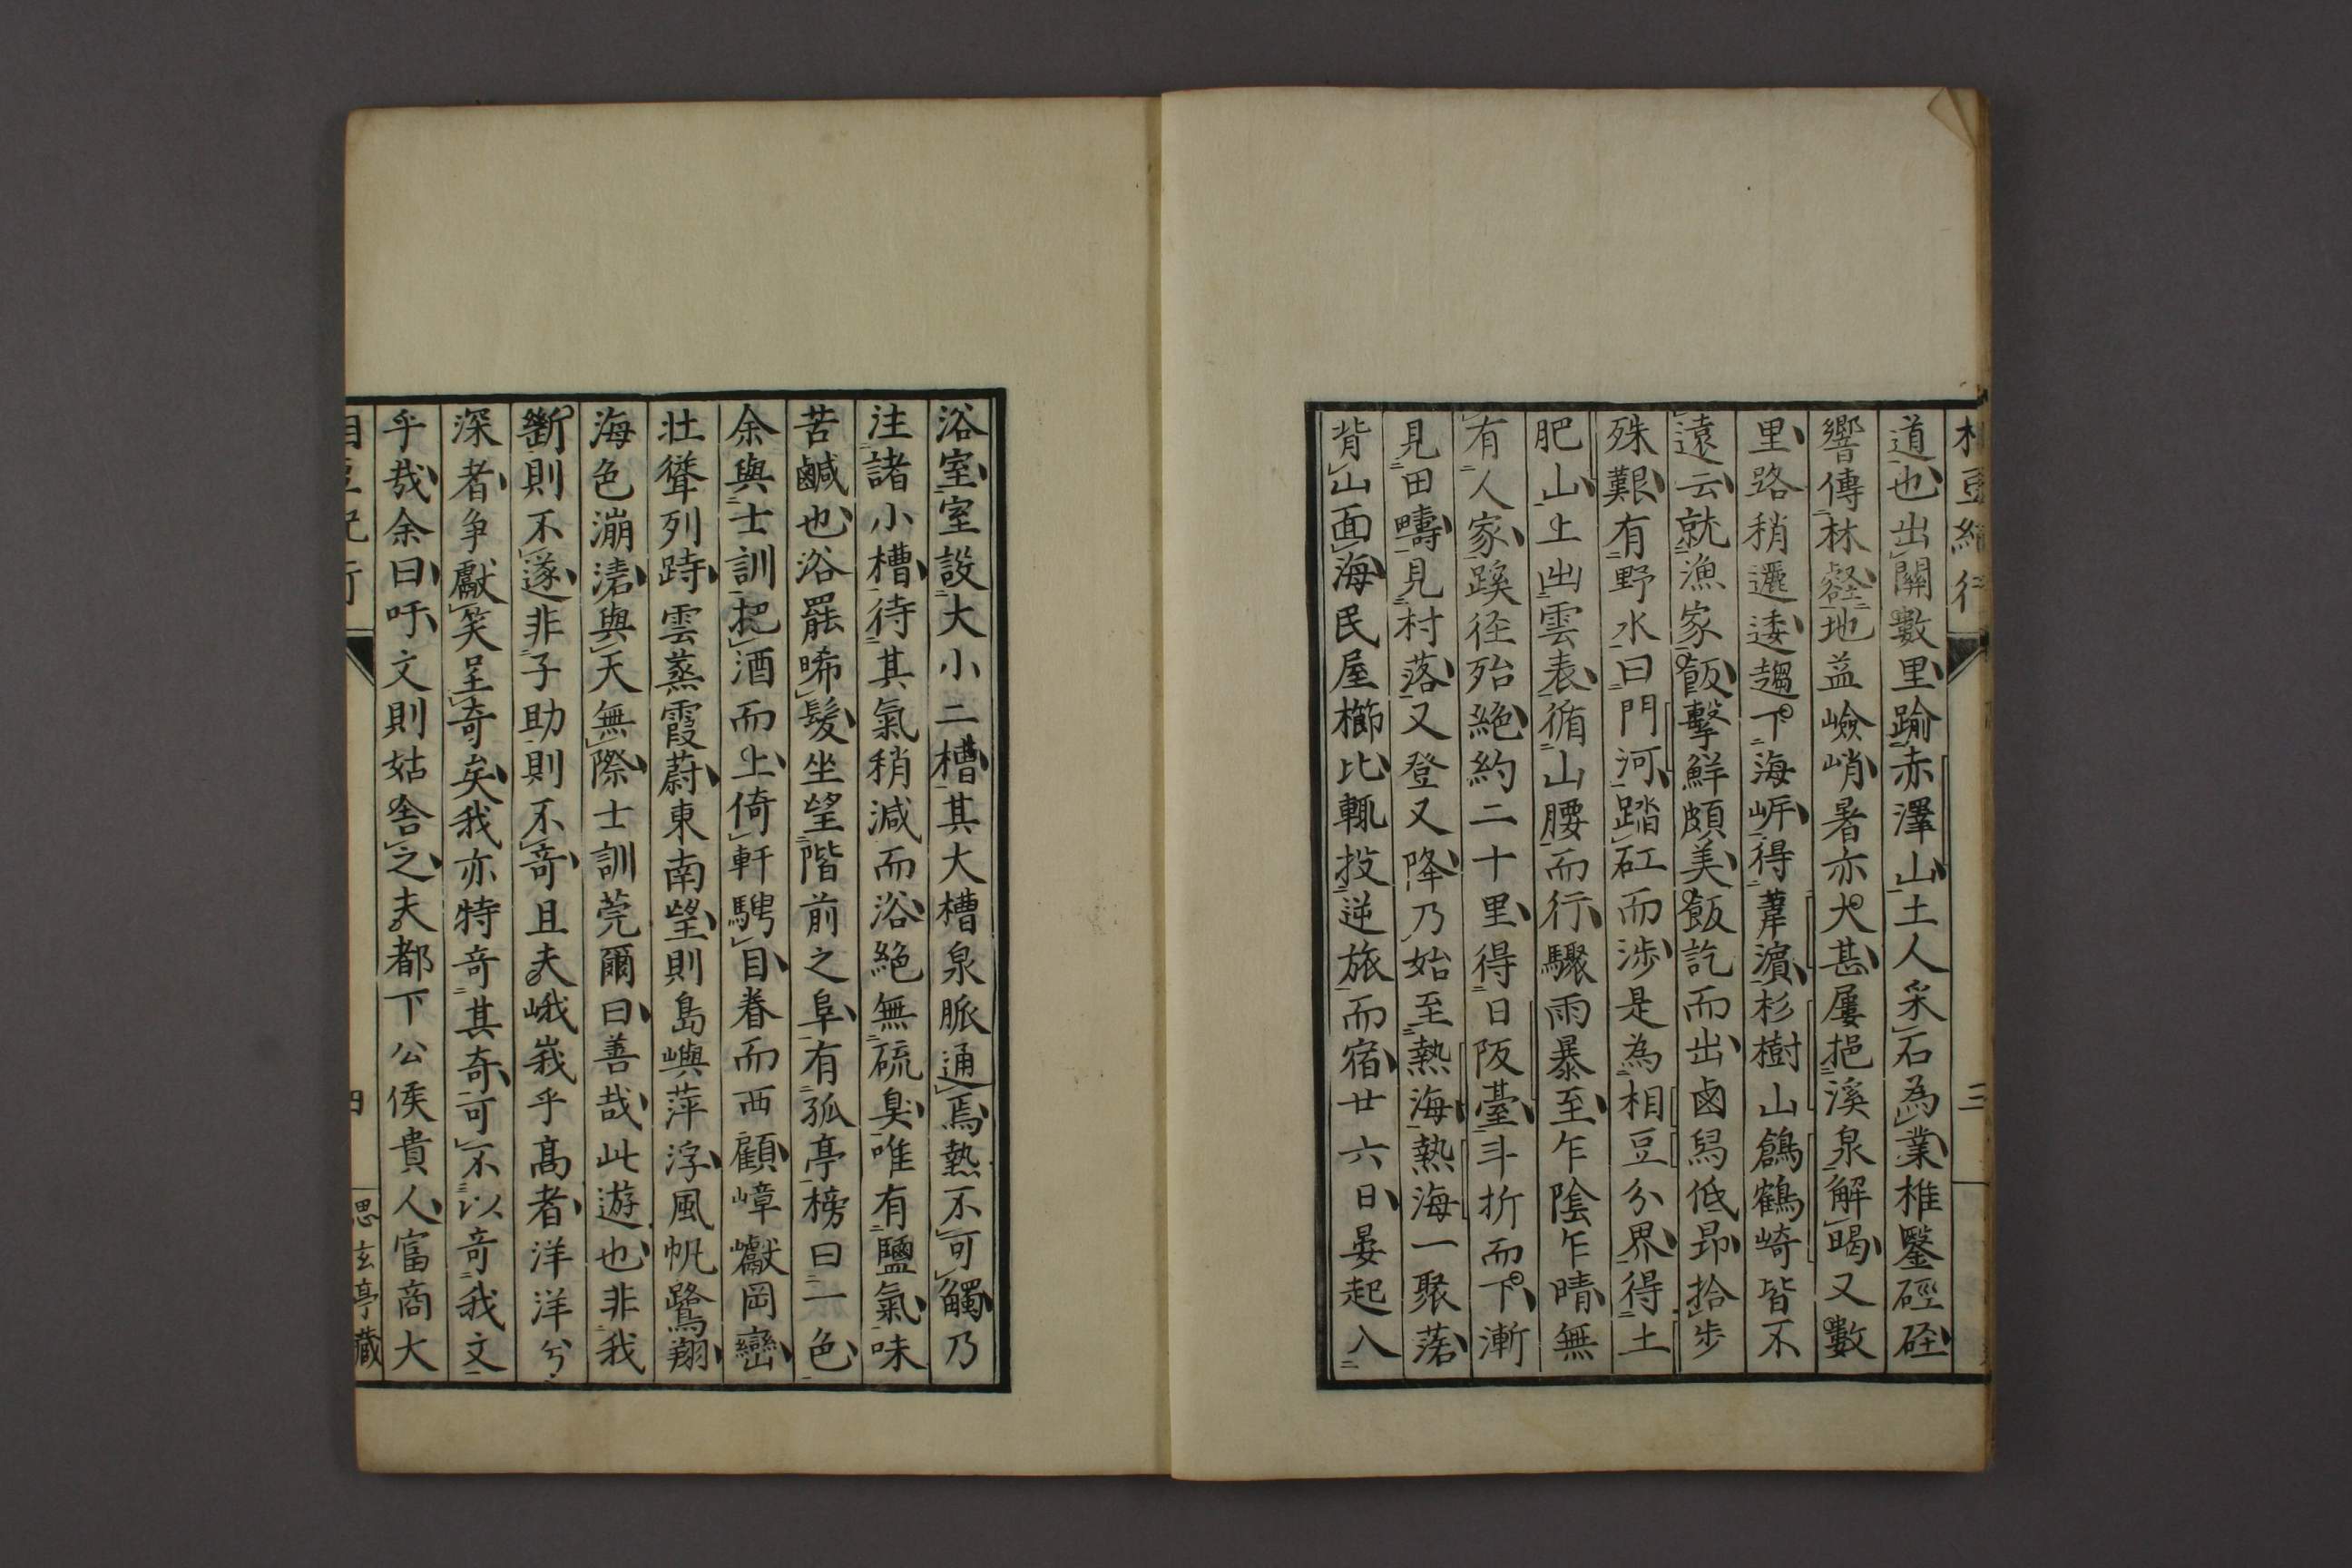 相豆紀行 三
道也出關數里踰赤澤山土人采石為業椎鑿硜硜
響傳林壑地益嶮峭暑亦大甚屢挹溪泉解暍又數
里路稍邐逶趨下海岸得葦濵杉樹山鶬鶴崎皆不
遠云就漁家飯擊鮮頗美飯訖而出鹵舄低昂拾步
殊艱有野水曰門河踏矼而涉是為相豆分界得土
肥山山出雲表循山腰而行驟雨暴至乍陰乍晴無
有人家蹊径殆絶約二十里得日阪臺斗折而下漸
見田疇見村落又登又降乃始至熱海熱海一聚落
背山面海民屋櫛比輒投逆旅而宿廿六日晏起入
浴室室設大小二槽其大槽泉脈通焉熱不可觸乃
注諸小槽待其氣稍減而浴絶無硫臭唯有鹽氣味
苦鹹也浴罷晞髮坐望階前之阜有孤亭榜曰一色
余與士訓把酒而上倚軒騁目眷而西顧嶂巘岡巒
壮聳列跱雲蒸霞蔚東南望則島嶼萍浮風帆鷺翔
海色淜濸與天無際士訓莞爾曰善哉此遊也非我
斷則不遂非子助則不奇且夫峨峩乎高者洋洋兮
深者争獻笑呈奇矣我亦特奇其奇可不以奇我文
乎哉余曰吁文則姑舎之夫都下公侯貴人富商大
相豆紀行 四 思玄亭藏